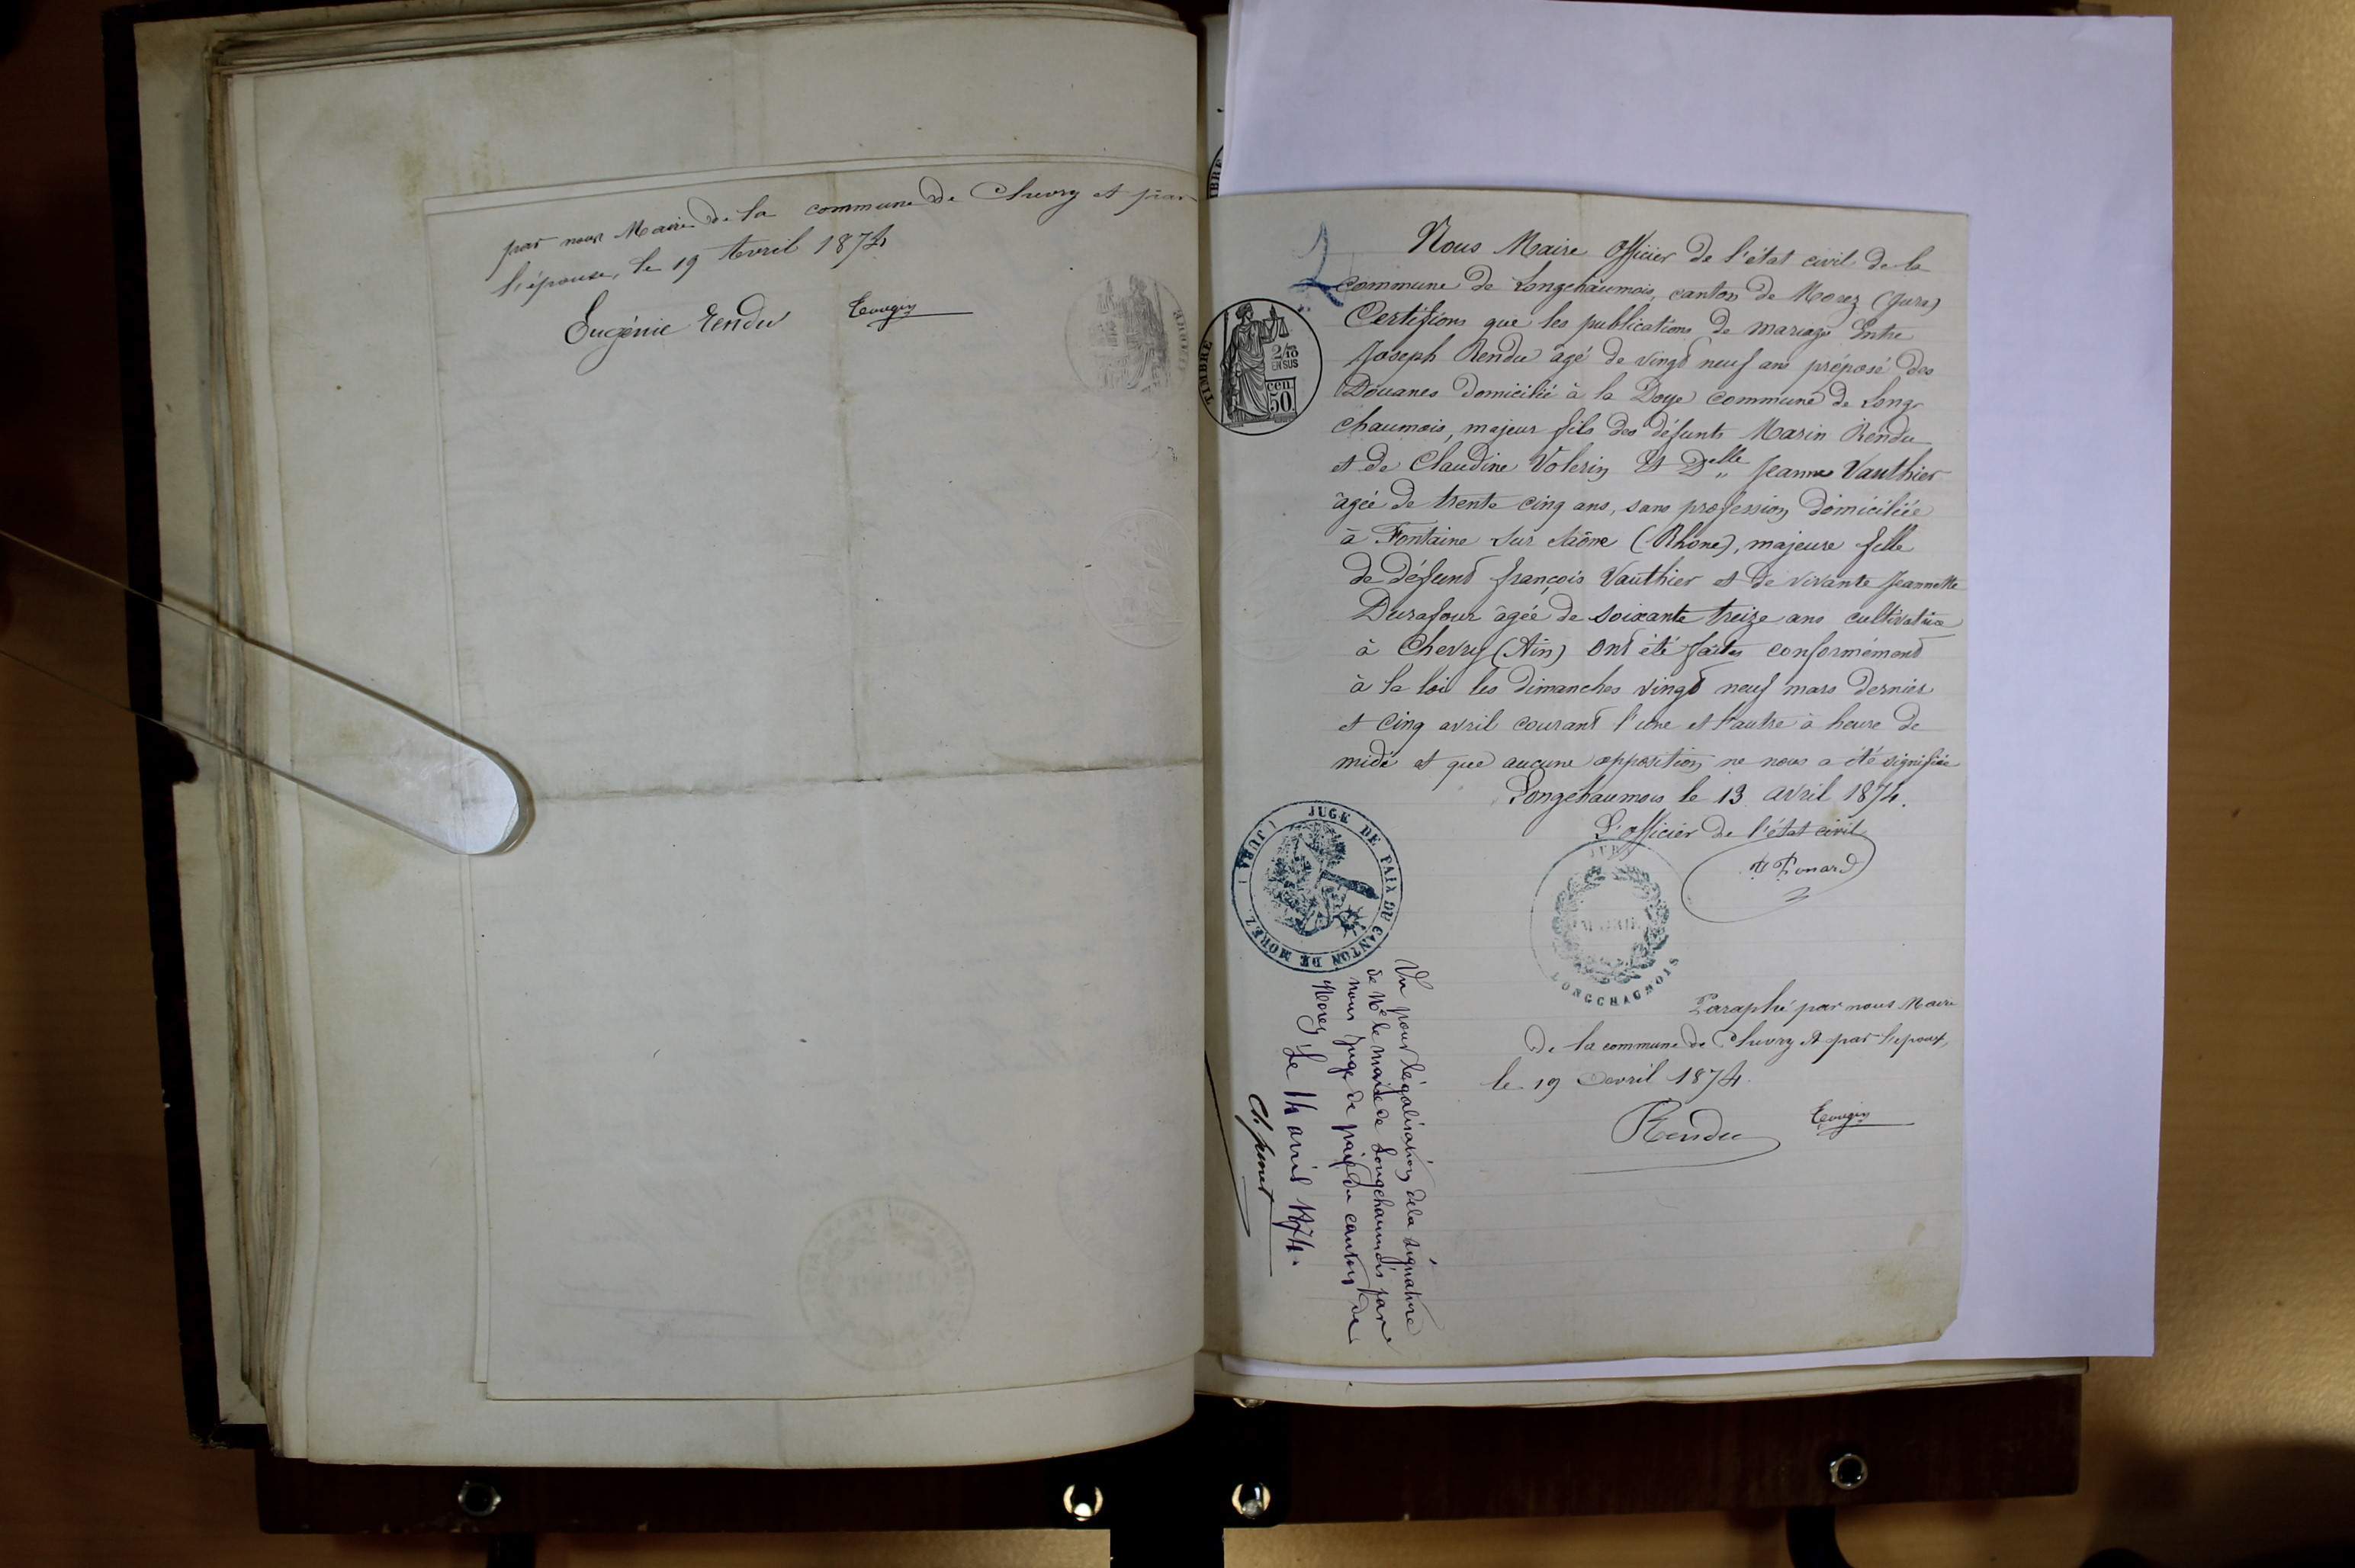 par nous Maire de la commune de Chevry et par
l'épouse, le 19 Avril 1874
Eugénie Rendu Tougin
2
Nous Maire Officier de l'état civil de la
commune de Longchaumois, canton de Morez (Jura)
Certifions que les publications de mariage Entre
Joseph Rendu âgé de vingt neuf ans préposé des
Douanes domicilié à la Doye commune de Long-
chaumois, majeur fils des défunts Marin Rendu
et de Claudine Volerin Et Delle Jeanne Vauthier
âgée de trente cinq ans, sans profession domiciliée
à Fontaine sur Saône (Rhône), majeure fille
de défunt françois Vauthier et de vivante Jeannette
Durafour âgée de soixante treize ans cultivatrice
à Chevry (Ain) ont été faites conformément
à la loi les dimanches vingt neuf mars dernier
et cinq avril courant l'une et l'autre à heure de
midi et que aucune opposition ne nous a été signifiée
Longchaumois le 13 avril 1874.
L'officier de l'état civil
TIMBRE
2/10
EN SUS
50 cen
JUGE DE PAIX DU CANTON DE MOREZ (JURA)
JURA
MAIRIE
LONGCHAUMOIS
Paraphé par nous Maire
de la commune de Chevry et par l'epoux,
le 19 avril 1874.
Rendu Tougin
Vu pour légalisation de la signature
de Mr le maire de Longchaumois par
nous juge de paix du canton de
Morez le 14 avril 1874.